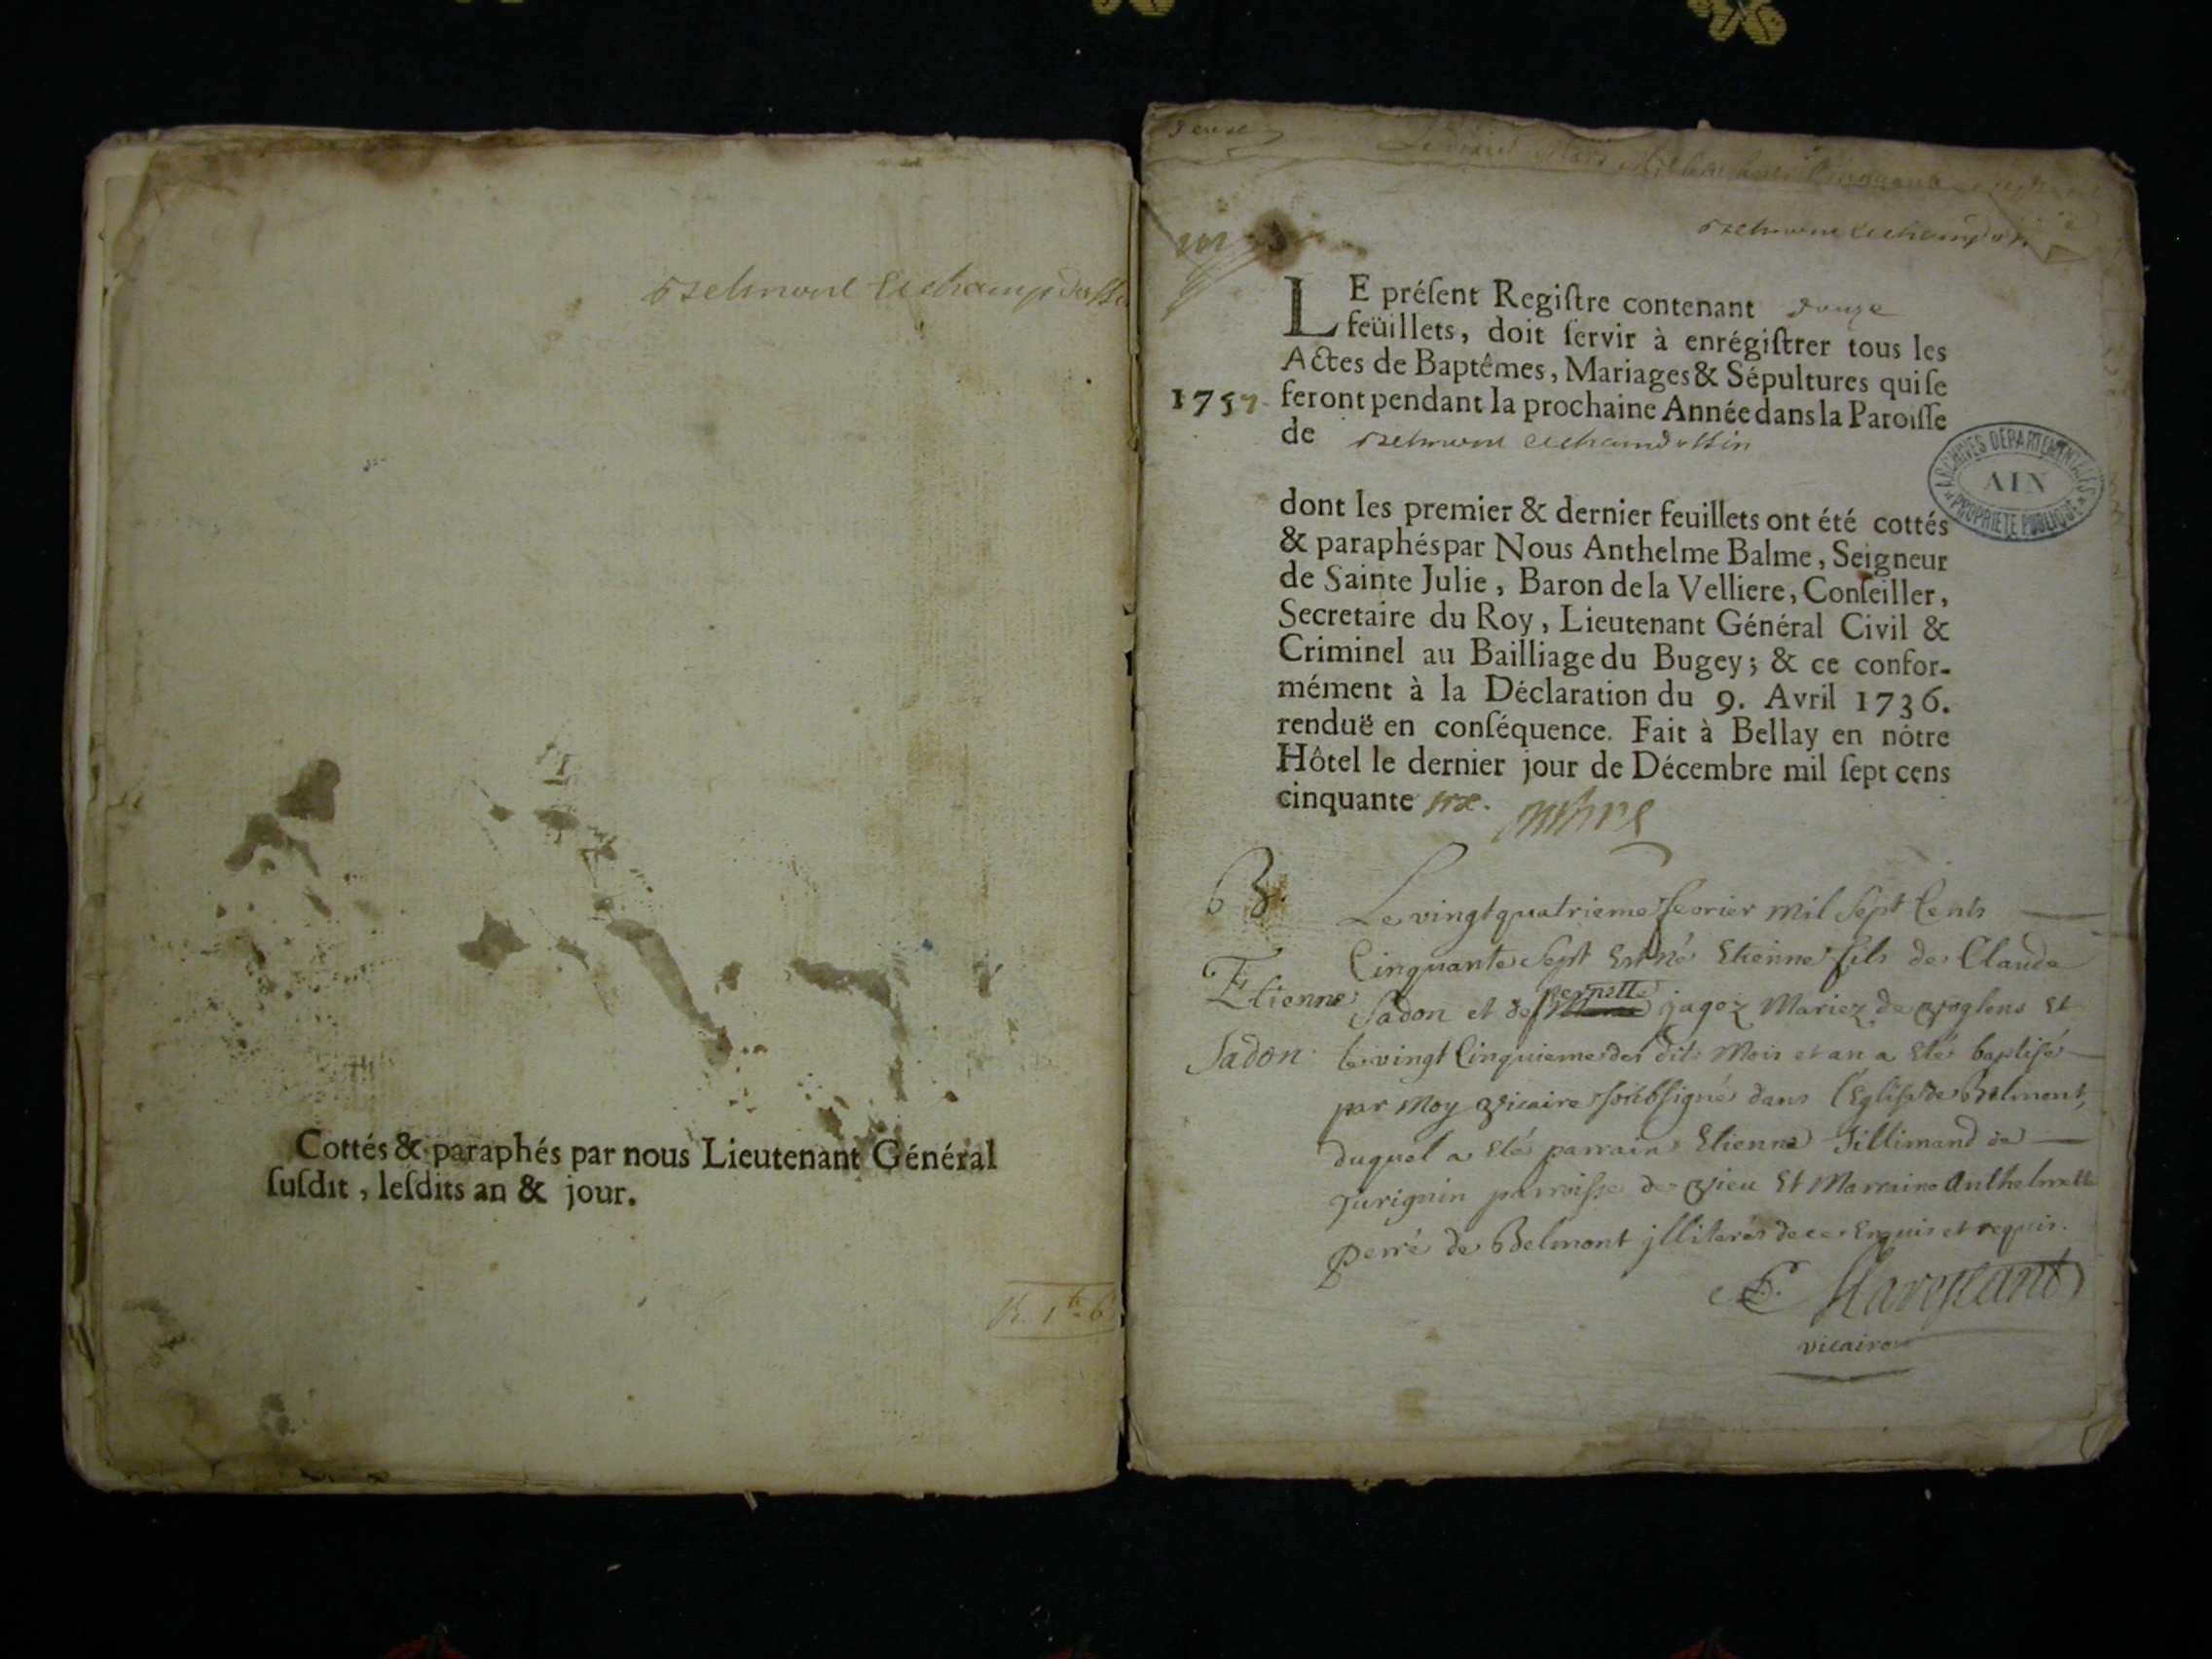 Belmont
Cottés & paraphés par nous Lieutenant Général
ſuſdit, leſdits an & jour.
Belmont
LE préſent Regiſtre contenant douze
feüillets, doit ſervir à enrégiſtrer tous les
Actes de Baptêmes, Mariages & Sépultures qui ſe
1757
feront pendant la prochaine Année dans la Paroiſſe
de Belmont
ARCHIVES DÉPARTEMENTALES
AIN
PROPRIÉTÉ PUBLIQUE
dont les premier & dernier feuillets ont été cottés
& paraphés par Nous Anthelme Balme, Seigneur
de Sainte Julie, Baron de la Velliere, Conſeiller,
Secretaire du Roy, Lieutenant Général Civil &
Criminel au Bailliage du Bugey; & ce confor-
mément à la Déclaration du 9. Avril 1736.
renduë en conſéquence. Fait à Bellay en nôtre
Hôtel le dernier jour de Décembre mil ſept cens
cinquante six.
B.
Etienne
Sadon
Le vingt quatrieme fevrier mil Sept Cents
Cinquante Sept Est né Etienne fils de Claude
Sadon et de pernette jagoz Mariez de voglens Et
le vingt Cinquieme des dits Mois et an a Eté baptisé
par Moy vicaire soubsigné dans l'Eglise de Belmont,
duquel a Eté parrain Etienne Tillimand de
Jurignin parroisse de vieu Et Marraine Anthelmette
perré de Belmont jlliterés de ce Enquis et requis.
vicaire